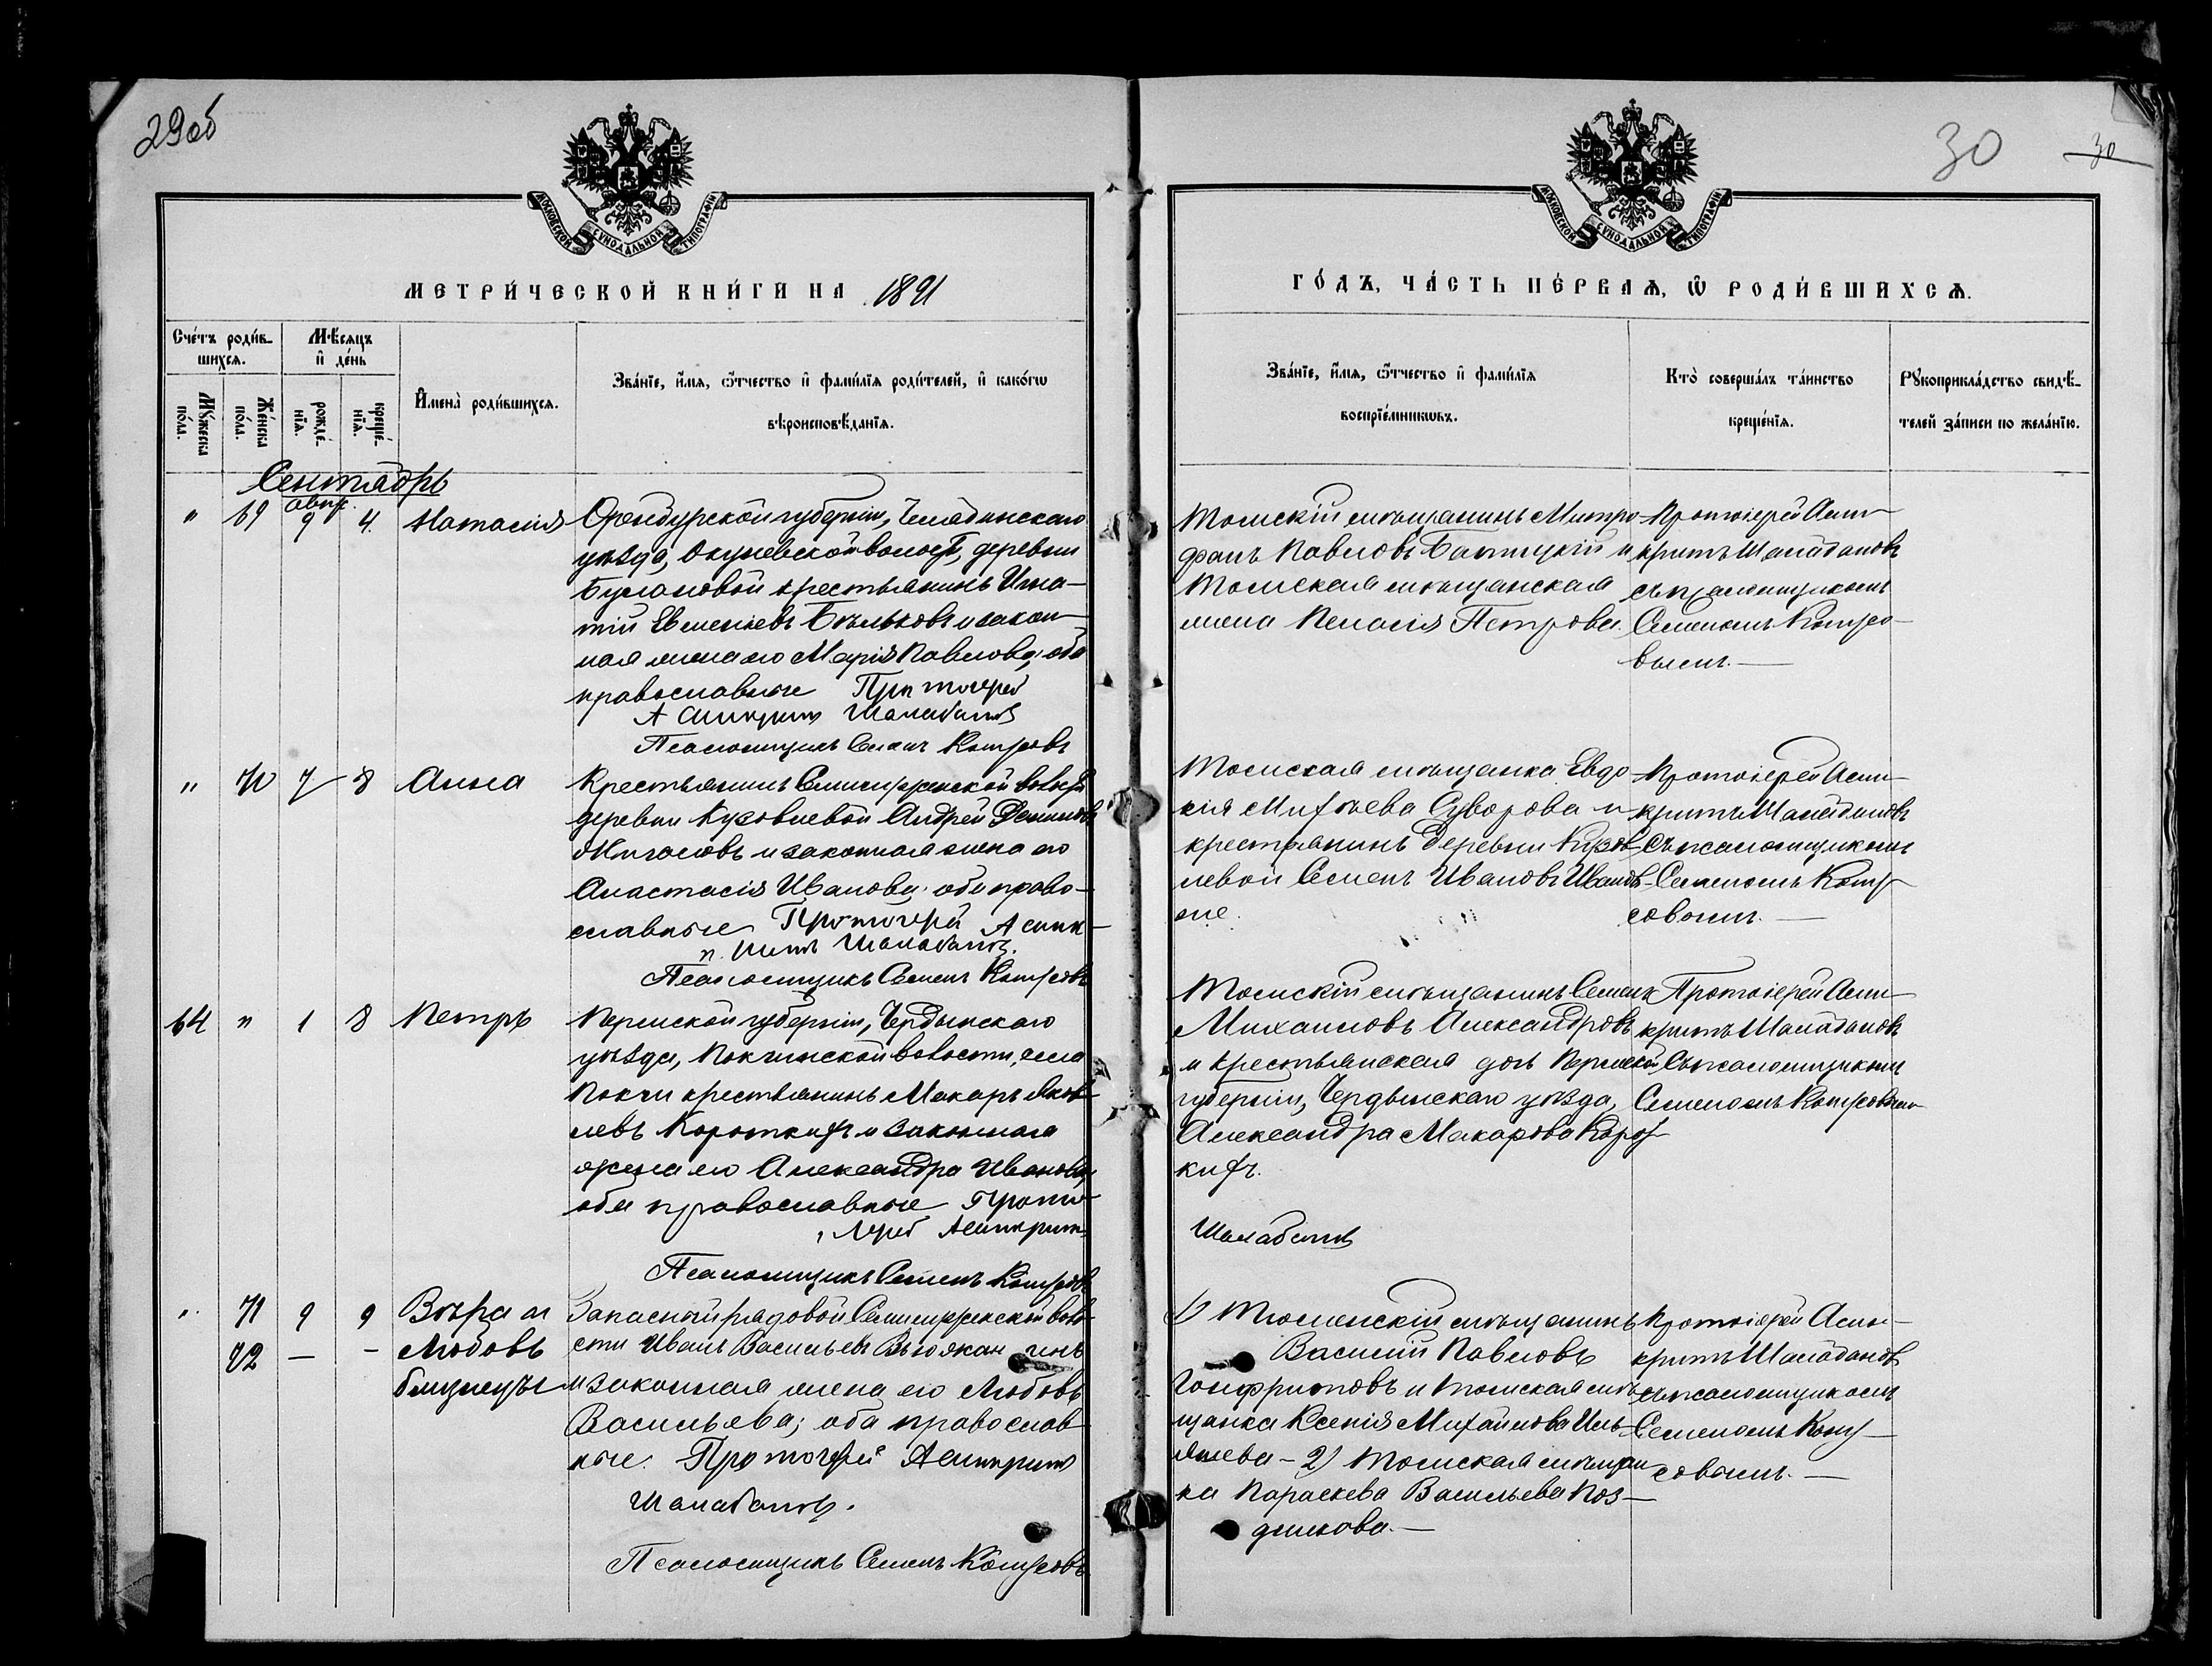 29 об
30
30
МОСКОВСКОЙ СѴНОДАЛЬНОЙ ТИПОГРАФІИ
МОСКОВСКОЙ СѴНОДАЛЬНОЙ ТИПОГРАФІИ
МЕТРИ́ЧЕСКОЙ КНИ́ГИ НА 1891
ГО́ДЪ, ЧА́СТЬ ПЕ́РВАѦ, Ѡ҆ РОДИ́ВШИХСѦ.
Сче́тъ роди́в-
шихсѧ.
Мѣ́сѧцъ
и҆ де́нь
Мꙋ́жеска
по́ла.
Же́нска
по́ла.
рожде́-
нїѧ.
креще́-
нїѧ.
И҆мена̀ роди́вшихсѧ.
Зва́нїе, и҆́мѧ, ѻ҆́тчество и҆ фамі́лїѧ роди́телей, и҆ како́гѡ
вѣроисповѣ́данїѧ.
Зва́нїе, и҆́мѧ, ѻ҆́тчество и҆ фамі́лїѧ
воспрїе́мникѡвъ.
Кто̀ соверша́лъ та́инство
креще́нїѧ.
Рꙋкоприкла́дство свидѣ́-
телей за́писи по жела́нїю.
Сентябрь
авг.
" 69 9 4. Наталія
Оренбургской губерніи, Челябинскаго
уѣзда, Окуневской волост, деревни
крестьянинъ Игна-
тій Евменіевъ Бѣльковъ и закон-
ная жена его Марія Павлова, оба
православные Протоіерей
Асинкритъ Шалабановъ
Псаломщикъ Семенъ
Томскій мѣщанинъ Митро-
фанъ Павловъ и
Томская мѣщанская
жена Пелагія Петрова.
Протоіерей Асин-
критъ Шалабановъ
съ псаломщикомъ
Семеномъ
вымъ. —
" 70 7 8 Анна
Крестьянинъ волости
деревни Кузовлевой Андрей
Жигаловъ и законная жена его
Анастасія Иванова, оба право-
славные Протоіерей Асинк-
ритъ Шалабановъ.
Псаломщикъ Семенъ
Томская мѣщанка Евдо-
кія Михѣева Суворова и
крестьянинъ деревни Кузов-
левой Семенъ Ивановъ
Протоіерей Асин-
критъ Шалабановъ
съ псаломщикомъ
Семеномъ
совымъ. —
64 " 1 8 Петръ
Пермской губерніи, Чердынскаго
уѣзда, Покчинской волости, села
Покчи крестьянинъ Макаръ Яков-
левъ Короткихъ и законная
жена его Александра Иванова,
оба православные Прото-
іерей Асинкритъ
Шалабановъ
Псаломщикъ Семенъ
Томскій мѣщанинъ Семенъ
Михаиловъ Александровъ
и крестьянская дочь Пермской
губерніи, Чердынскаго уѣзда,
Александра Макарова Корот-
кихъ.
Протоіерей Асин-
критъ Шалабановъ
съ псаломщикомъ
Семеномъ
" 71 9 9 Вѣра и
72 — - Любовь
близнецы
Запасный рядовой воло-
сти Иванъ Васильевъ
и законная жена его Любовь
Васильева; оба православ-
ные. Протоіерей Асинкритъ
Шалабановъ.
Псаломщикъ Семенъ
1) Тюменскій мѣщанинъ
Василій Павловъ
и томская мѣ-
щанка Ксенія Михайлова
— 2) Томская мѣщан-
ка Параскева Васильева Поз-
днякова. —
Протоіерей Асин-
критъ Шалабановъ
съ псаломщикомъ
Семеномъ
совымъ. —